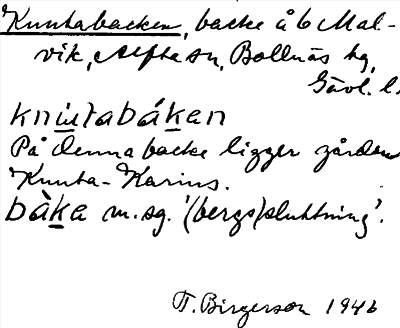 Knutabacken, backe å 6 Mal-
vik, Alfta sn, Bollnäs tg,
Gävl. l.
knùtabáken
På denna backe ligger gården
Knuta-Karins.
bàka m. sg. '(bergs)sluttning'.
T. Birgerson 1946